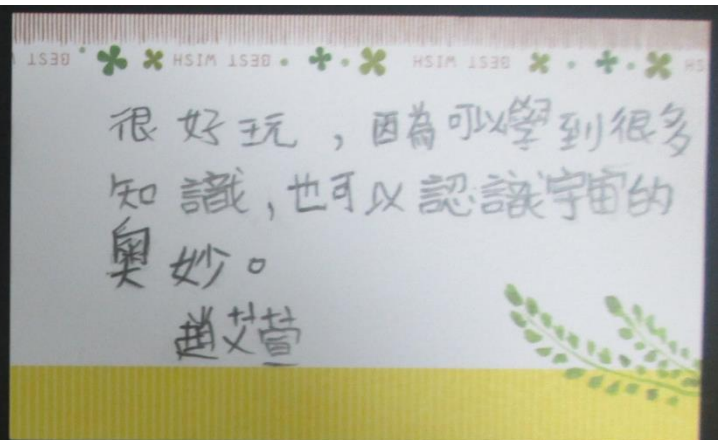 BEST WISH BEST WISH BEST WISH
很好玩，因為可以學到很多
知識，也可以認識宇宙的
奧妙。
趙艾萱